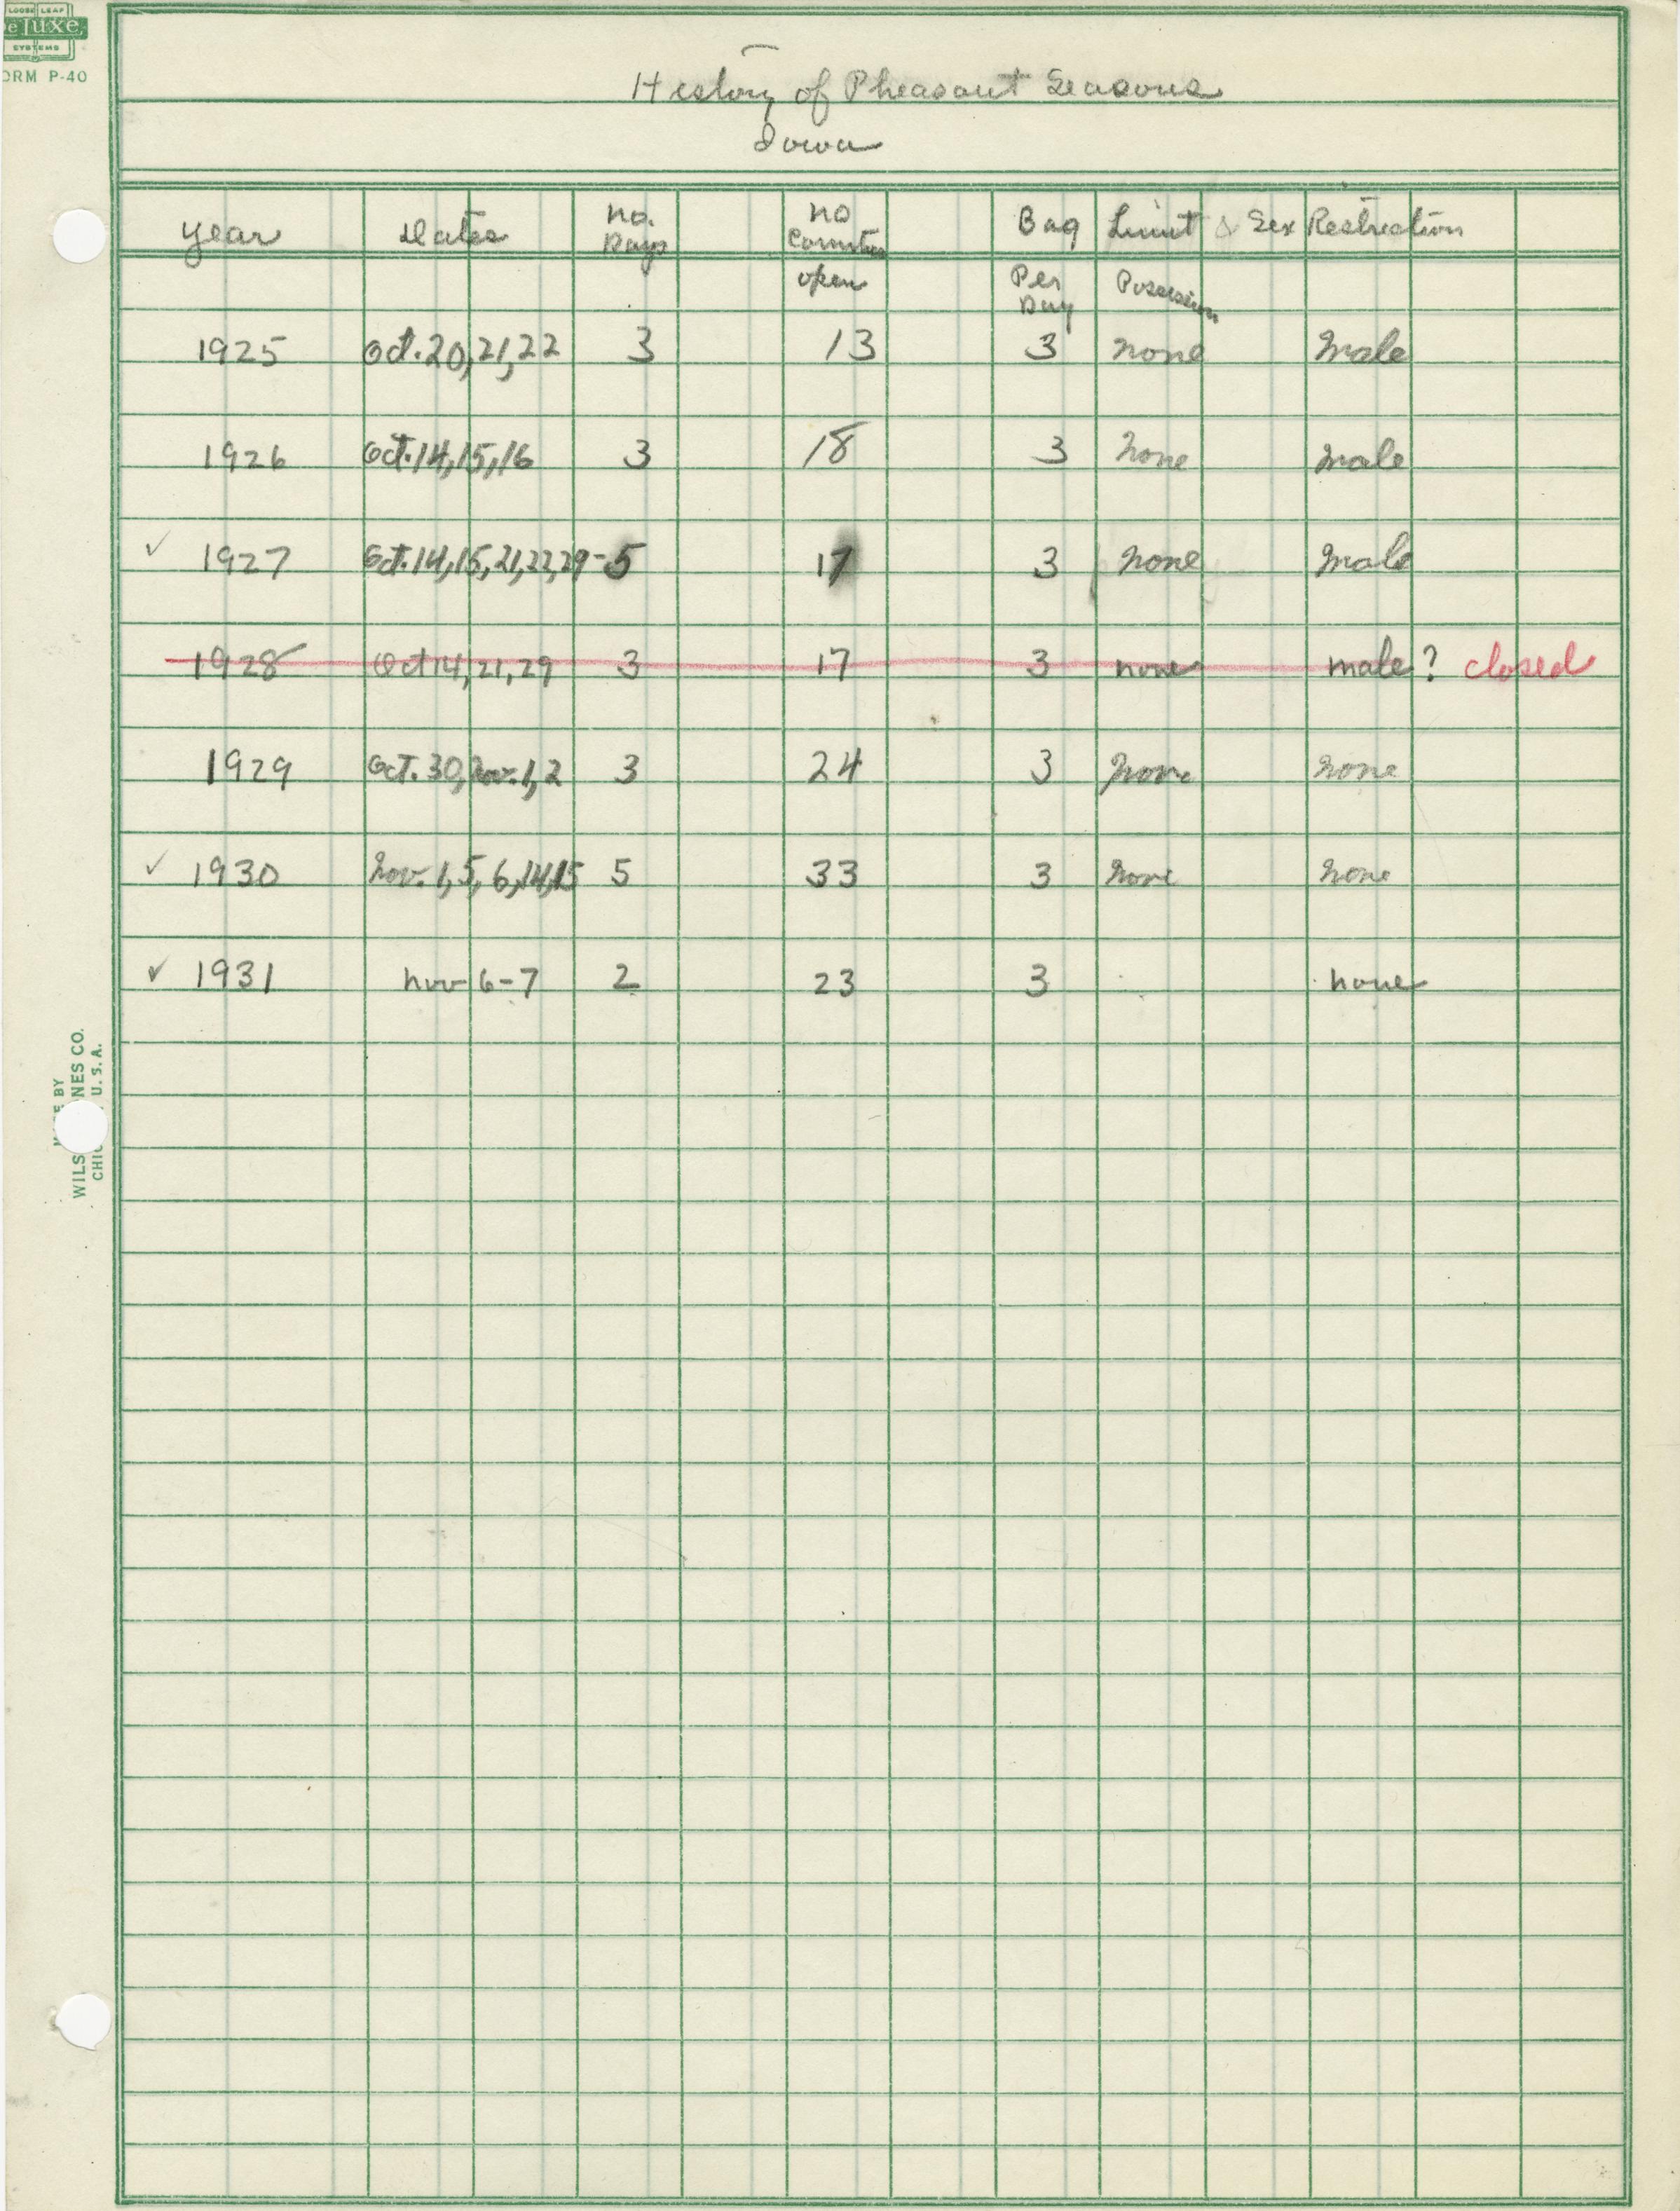 LOOSE LEAF
DeLuxe
SYSTEMS
FORM P-40
History of Pheasant Seasons
Iowa
Year Dates No. Days No Counties Bag Limit & Sex Restriction
open Per Day Possession
1925 Oct. 20, 21, 22 3 13 3 none Male
1926 Oct. 14, 15, 16 3 18 3 None Male
✓ 1927 Oct. 14, 15, 21, 22, 29 - 5 17 3 None Male
1928 Oct 14, 21, 29 3 17 3 none male? closed
1929 Oct. 30, Nov. 1, 2 3 24 3 None None
✓ 1930 Nov. 1, 5, 6, 14, 15 5 33 3 None None
✓ 1931 Nov 6-7 2 23 3 none
BY
WILS NES CO.
CHIC U.S.A.